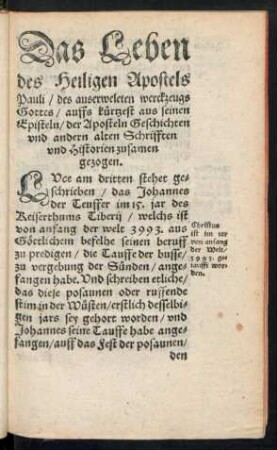 Das Leben
des Heiligen Apostels
Pauli / des auserweleten werckzeugs
Gottes / auffs kürtzest aus seinen
Episteln / der Aposteln Geschichten
vnd andern alten Schrifften
vnd Historien zusamen
gezogen.
LVce am dritten stehet ge-
schrieben / das Johannes
der Teuffer im 15. jar des
Keiserthums Tiberij / welchs ist
von anfang der welt 3993. aus
Göttlichem befelhe seinen beruff
zu predigen / die Tauffe der busse /
zu vergebung der Sünden / ange-
fangen habe. Vnd schreiben etliche /
das diese posaunen oder ruffende
stim in der Wüsten / erstlich desselbi-
gen jars sey gehort worden / vnd
Johannes seine Tauffe habe ange-
fangen / auff das Fest der posaunen /
den
Christus
ist im
von anfang
der Welt /
3993. ge-
taufft wor-
den.